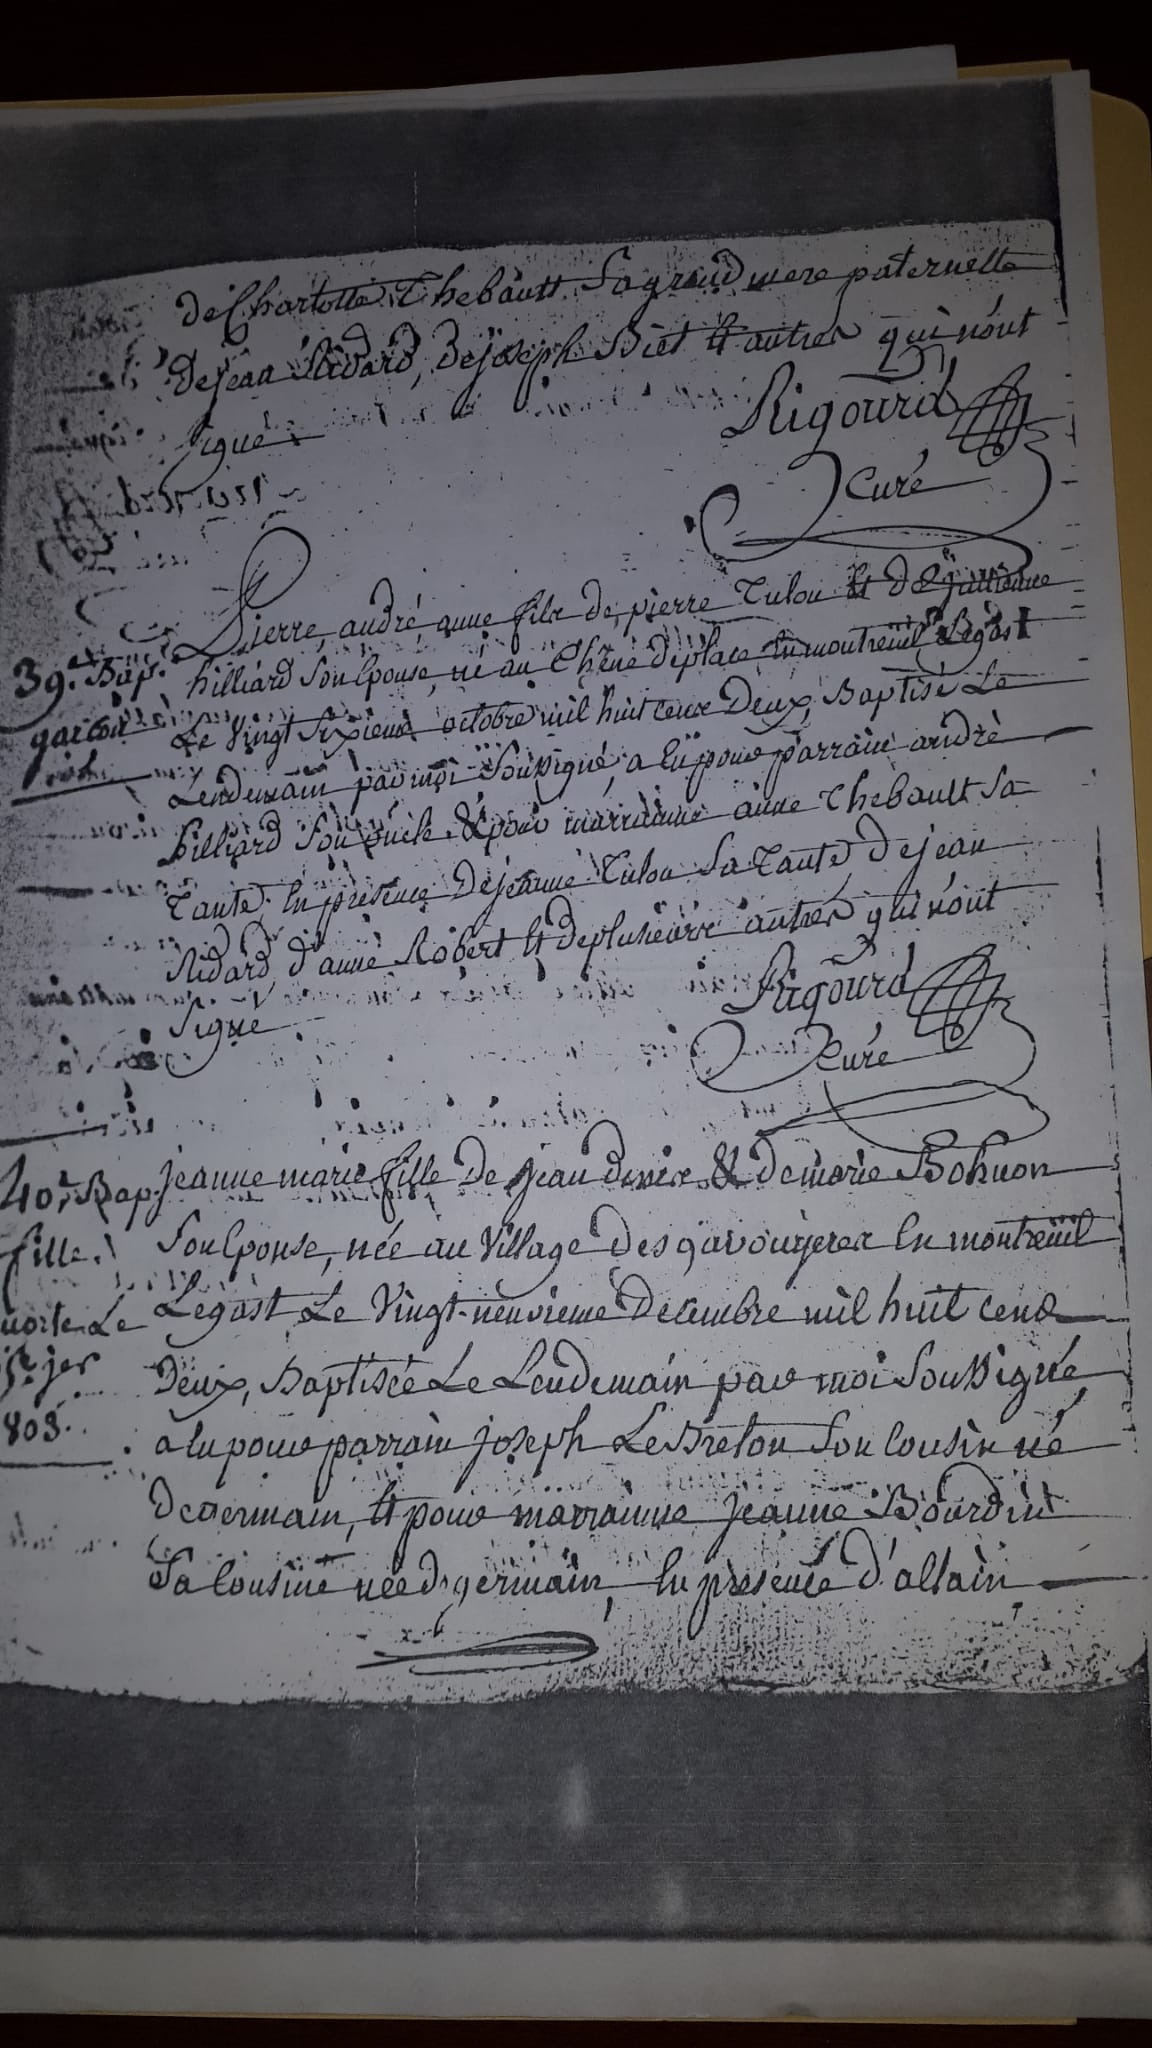 de Charlotte Thebault Sa grand mere paternelle
de jean Ridard, de joseph Biet Et autres qui n'ont
Signé
Rigourd
Curé
39.e Bap.
garcon
Pierre, andré, anne fils de pierre Tulou Et de jullienne
hilliard Son Epouse, né au Chêne deplace En montreüil Legast
Le Vingt Sixieme octobre mil huit cens Deux, Baptisé Le
Lendemain par moi Soussigné, a Eü pour parrain andrè
hilliard Son oncle & pour marrainne anne Thebault Sa
Tante, En présence de jeanne Tulou Sa Tante, De jean
Ridard, d'anne Robert Et de plusieurs autres qui n'ont
Signé
Rigourd
Curé
40.e Bap.
fille.
morte Le
jer
803.
jeanne marie fille De jean denis & de marie Bohuon
Son Epouse, née au Village Des gavourjeres En montreüil
Legast Le Vingt-neuvieme Decembre mil huit cens
Deux, Baptisée Le Lendemain par moi Soussigné
a Eu pour parrain joseph Le Breton Son Cousin né
De germain, Et pour marrainne jeanne Bourdin
Sa Cousine née de germain, En présence d'allain